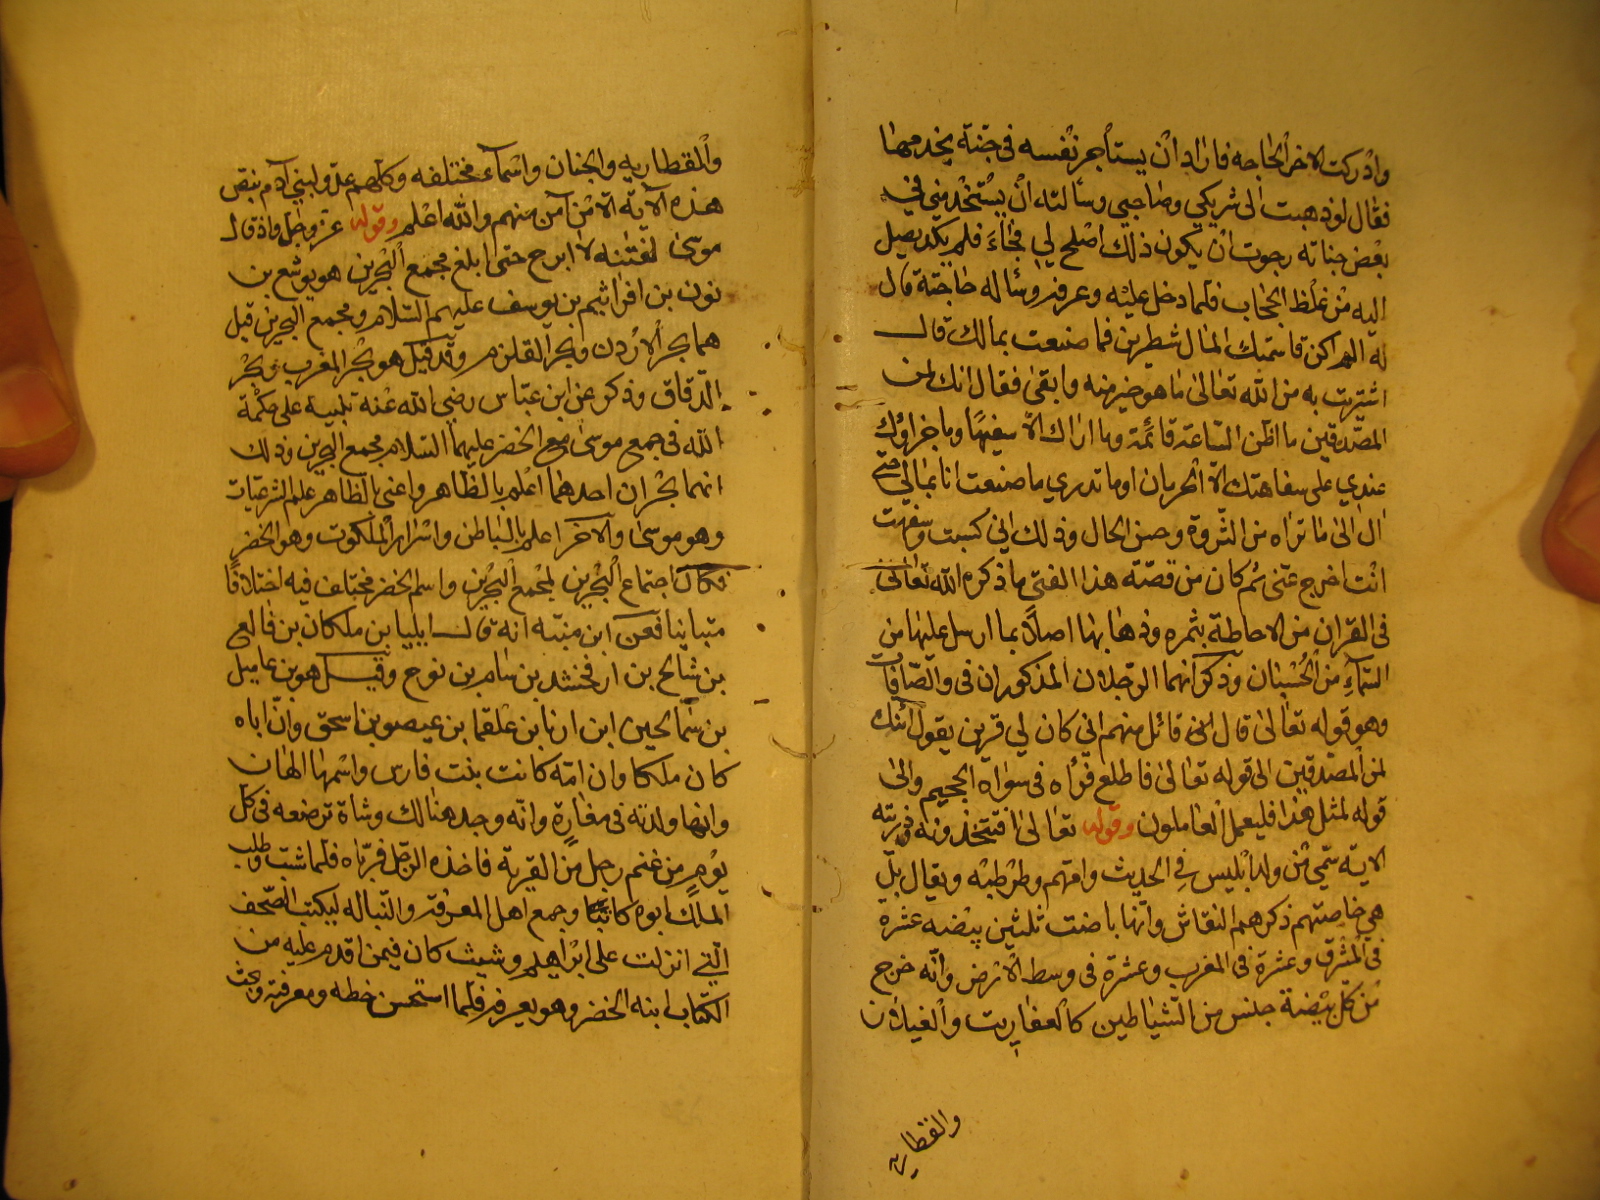 وادركت الاخر الحاجه فاراد ان يستأجر نفسه في جنة يخدمها
فقال لو ذهبت الى شريكي وصاحبي وسألته ان يستخدمني في
بعض جناته رجوت ان يكون ذلك اصلح لي فجاء فلم يكد يصل
اليه من غلظ الحجاب فلما دخل عليه وعرفه وسأله حاجته قال
له الم اكن قاسمتك المال شطرين فما صنعت بمالك قال
اشتريت به من الله تعالى ما هو خير منه وابقى فقال انك لمن
المصدقين ما اظن الساعة قائمة وما اراك الا سفيها وما جزاؤك
عندي على سفاهتك الا الحرمان اوما تدري ما صنعت انا بمالي حتى
ال الى ما تراه من الثروة وحسن الحال وذلك اني كسبت وسفهت
انت اخرج عني ثم كان من قصة هذا الفتى ما ذكره الله تعالى
في القران من الاحاطة بثمره وذهابها اصلا بما ارسل عليها من
السماء من الحسبان وذكر انهما الرجلان المذكوران في والصافات
وهو قوله تعالى قال قائل منهم اني كان لي قرين يقول ائنك
لمن المصدقين الى قوله تعالى فاطلع فرأاه في سواء الجحيم والى
قوله لمثل هذا فليعمل العاملون وقوله تعالى افتتخذونه وذريته
الاية سمي من ولد ابليس في الحديث واقهم وطرطبه ويقال بل
هي خاصتهم ذكرهم النقاش وانها باضت ثلثين بيضه عشرة
في المشرق وعشرة في المغرب وعشرة في وسط الارض وانه خرج
من كل بيضة جنس من الشياطين كالعفاريت والغيلان
والقطاريه
والقطاريه والجنان واسماء مختلفه وكلهم عدو لبني آدم بنص
هذه الآية الا من آمن منهم والله اعلم وقوله عز وجل واذ قال
موسى لفتىنه لا ابرح حتى ابلغ مجمع البحرين هو يوشع بن
نون بن افراثيم بن يوسف عليهم السلام ومجمع البحرين قيل
هما بحر الاردن وبحر القلزم وقد قيل هو بحر المغرب وبحر
الزقاق وذكر عن ابن عباس رضي الله عنه تلبية على حكمة
الله في جمع موسى مع الخضر عليهما السلام مجمع البحرين وذلك
انهما بحران احدهما اعلم بالظاهر واعني بالظاهر علم الشرعيات
وهو موسى والآخر اعلم بالباطن واسرار الملكوت وهو الخضر
فكان اجتماع البحرين لمجمع البحرين واسم الخضر مختلف فيه اختلافا
متباينا فعن ابن منبه انه قال ايليا بن ملكان بن فالع
بن شالخ بن ارفخشد بن سام بن نوح وقيل هو بن عاميل
بن سمالحين ابن ارنا بن علقما بن عيصو بن اسحق وان اباه
كان ملكا وان امه كانت بنت فارس واسمها الهان
وانها ولدته في مغارة وانه وجد هنالك وشاة ترضعه في كل
يوم من غنم رجل من القرية فاخذه الرجل فرباه فلما شب وطلب
الملك ابوه كاتبا وجمع اهل المعرفة والنباله ليكتب الصحف
التي انزلت على ابراهيم وشيث كان فيمن اقدم عليه من
الكتاب ابنه الخضر وهو لا يعرفه فلما استحسن خطه ومعرفته وبحث